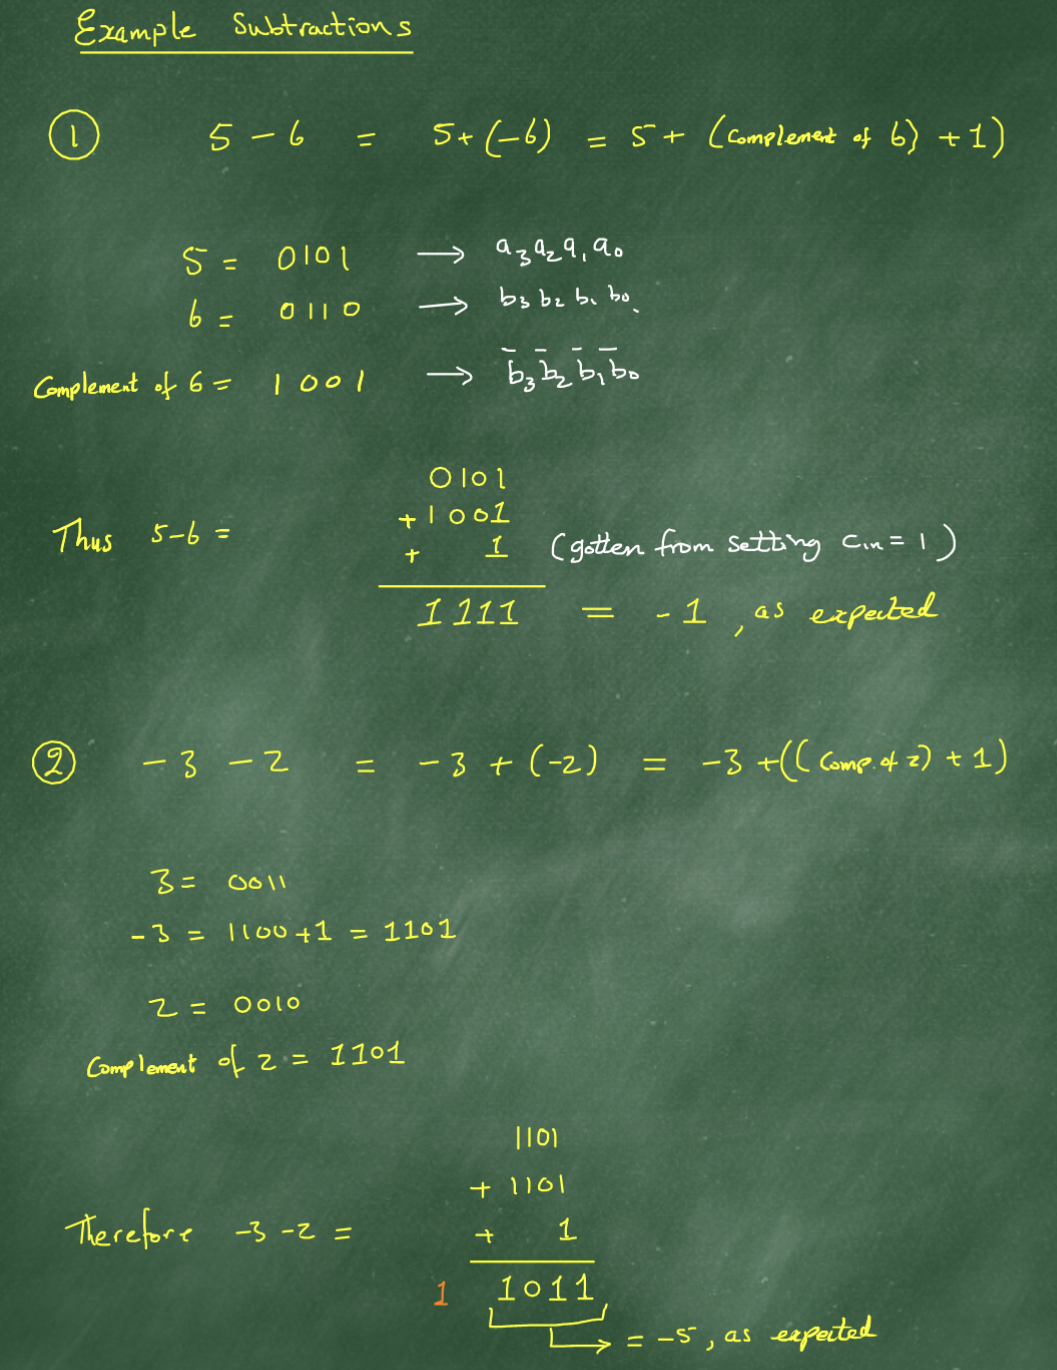 Example Subtractions
① 5 - 6 = 5 + (-6) = 5 + (Complement of 6) + 1)
5 = 0101 → a₃a₂a₁a₀
6 = 0110 → b₃b₂b₁b₀.
Complement of 6 = 1001 → b̅₃b̅₂b̅₁b̅₀
0101
+1001
Thus 5-6 = + 1 (gotten from setting Cin = 1)
1111 = -1, as expected
② -3 - 2 = -3 + (-2) = -3 + ((Comp. of 2) + 1)
3 = 0011
-3 = 1100 + 1 = 1101
2 = 0010
Complement of 2 = 1101
1101
+ 1101
Therefore -3 - 2 = + 1
1 1011
→ = -5, as expected